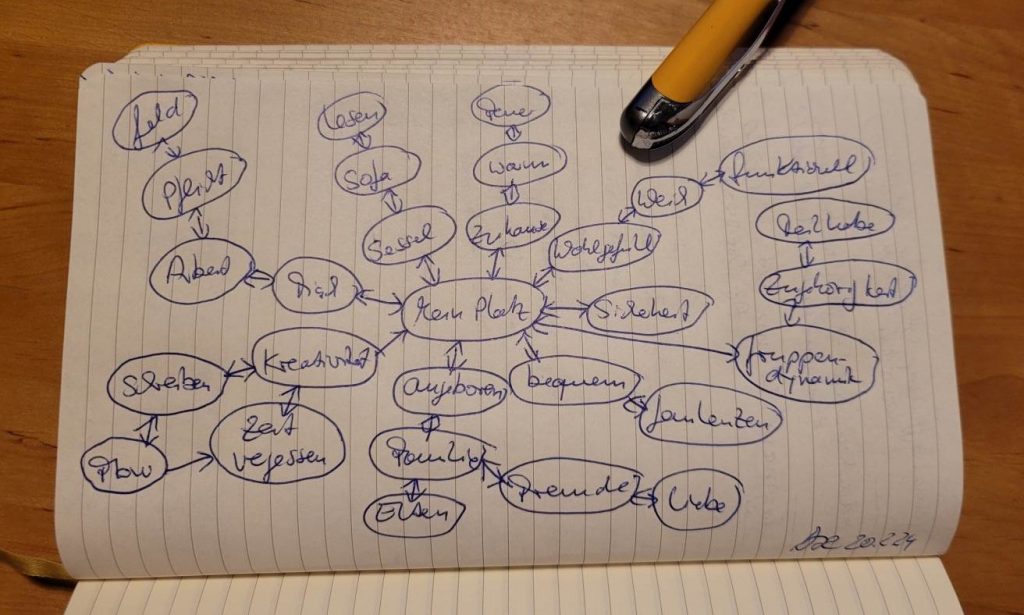 Geld
Lesen
Feuer
Pflicht
Sofa
warm
Weich
funktionell
Teilhabe
Arbeit
Tisch
Sessel
Zuhause
Wohlgefühl
Zugehörigkeit
Mein Platz
Sicherheit
Gruppen-
dynamik
Schreiben
Kreativität
angeboren
bequem
faulenzen
Flow
Zeit
vergessen
Familie
Freunde
Liebe
Eltern
20.2.24